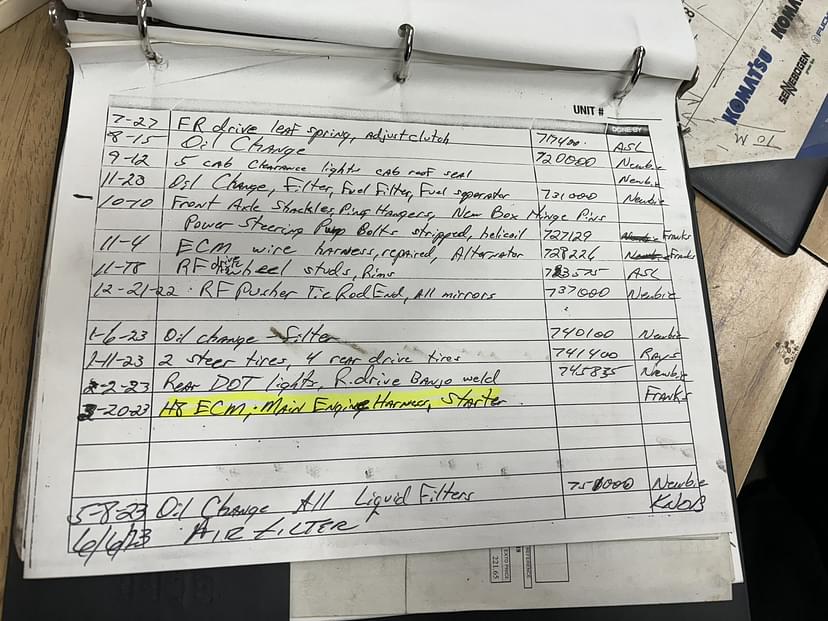 UNIT #
DONE BY
7-27 FR drive leaf spring, adjust clutch 717400 ASL
8-15 Oil Change 720000 Newbie
9-12 5 cab clearance lights cab roof seal Newbie
11-23 Oil Change, Filter, Fuel Filter, Fuel seperator 731000 Newbie
10-10 Front Axle Shackles, Pins, Hangers, New Box Hinge Pins
Power Steering Pump Bolts stripped, helicoil 727129 Franks
11-4 ECM wire harness, repaired, Alternator 728226 Franks
11-18 RF drive wheel studs, Rims 733575 ASL
12-21-22 RF Pusher Tie Rod End, All mirrors 737000 Newbie
1-6-23 Oil change - filter 740100 Newbie
1-11-23 2 steer tires, 4 rear drive tires 741400 Rays
2-2-23 Rear DOT lights, R. drive Banjo weld 745835 Newbie
3-20-23 ECM, Main Engine Harness, Starter Franks
5-8-23 Oil Change All Liquid Filters 750000 Newbie
6/6/23 AIR FILTER KNOB
KOMATSU
KOMATSU
SENNEBOGEN
221.65